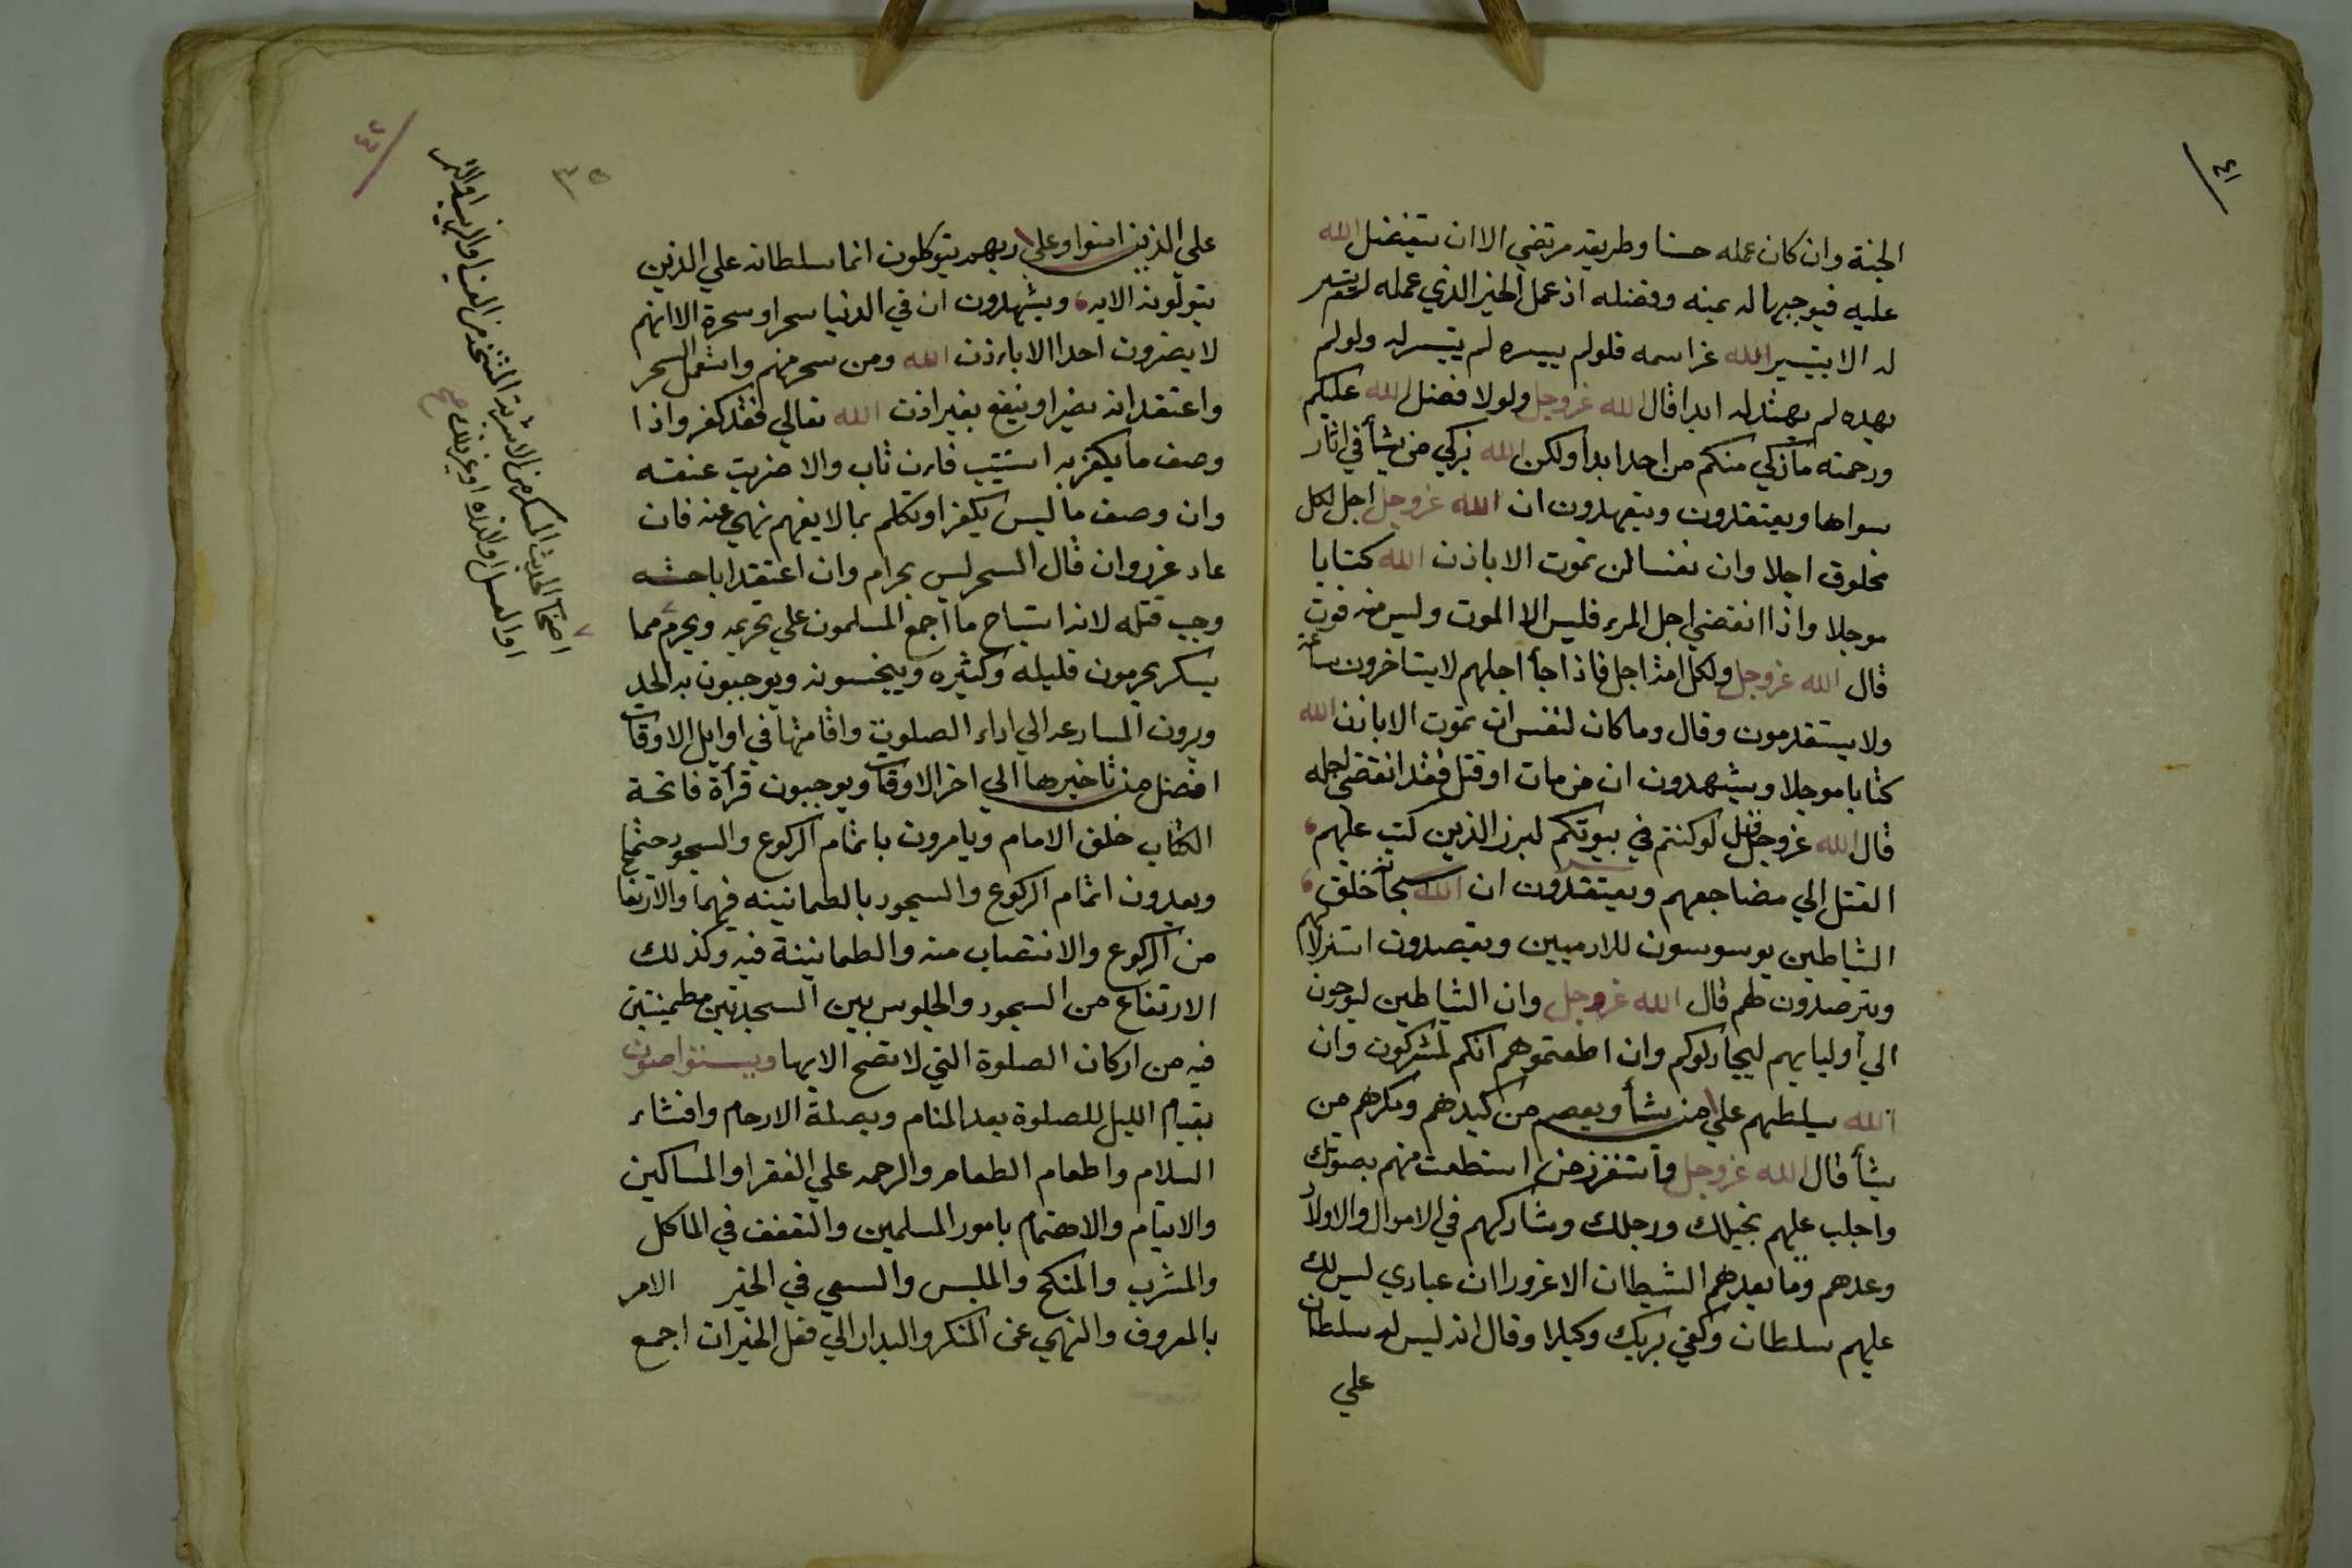 ٤١
الجنة وان كان عمله حسنا وطريقه مرتضي الا ان يتفضل الله
عليه فيوجبها له بمنه وفضله اذ عمل الخير الذي عمله لم يتيسر
له الا بتيسير الله عز اسمه فلو لم ييسره لم يتيسر له ولو لم
يهده لم يهتد له ابدا قال الله عز وجل ولولا فضل الله عليكم
ورحمته ما زكي منكم من احد ابدا ولكن الله يزكي من يشأ في اثار
سواها ويعتقدون ويتهدون ان الله عز وجل اجل لكل
مخلوق اجلا وان نفسا لن تموت الا باذن الله كتابا
موجلا واذا انقضي اجل المرء فليس الا الموت وليس منه فوت
قال الله عز وجل ولكل امة اجل فاذا جأ اجلهم لا يستاخرون ساعة
ولا يستقدمون وقال وما كان لنفس ان تموت الا باذن الله
كتابا موجلا ويشهدون ان من مات او قتل فقد انقضي اجله
قال الله عز وجل قل لو كنتم في بيوتكم لبرز الذين كتب عليهم
القتل الي مضاجعهم ويعتقدون ان الله سبحانه خلق
الشياطين يوسوسون للادميين ويقصدون استزلالهم
ويترصدون لهم قال الله عز وجل وان الشياطين ليوحون
الي أوليايهم ليجادلوكم وان اطعتموهم انكم لمشركون وان
الله يسلطهم علي من يشأ ويعصم من كيدهم ومكرهم من
يشأ قال الله عز وجل واستفزز من استطعت منهم بصوتك
واجلب عليهم بخيلك ورجلك وشاركهم في الاموال والاولاد
وعدهم وما يعدهم الشيطان الا غرورا ان عبادي ليس لك
عليهم سلطان وكفي بربك وكيلا وقال انه ليس له سلطان
علي
٤٢
٣٥
علي الذين امنوا وعلي ربهم يتوكلون انما سلطانه علي الذين
يتولونه الايه ويشهدون ان في الدنيا سحرا وسحرة الا انهم
لا يضرون احدا الا باذن الله ومن سحر منهم واستعمل السحر
واعتقد انه يضر او ينفع بغير اذن الله تعالي فقد كفر واذا
وصف ما يكفر به استتيب فان تاب والا ضربت عنقه
وان وصف ما ليس بكفر او تكلم بما لا يفهم نهي عنه فان
عاد عزر وان قال السحر ليس بحرام وان اعتقد اباحته
وجب قتله لانه استباح ما اجمع المسلمون علي تحريمه ويحرم مما
يسكر يحرمون قليله وكثيره وينجسونه ويوجبون به الحد
ويرون المسارعه الي اداء الصلوة واقامتها في اوايل الاوقات
افضل من تاخيرها الي اخر الاوقات ويوجبون قرأة فاتحة
الكتاب خلف الامام ويامرون باتمام الركوع والسجود حتما
ويعدون اتمام الركوع والسجود بالطمانينه فيهما والارتفاع
من الركوع والانتصاب منه والطمانينة فيه وكذلك
الارتفاع من السجود والجلوس بين السجدتين مطمينين
فيه من اركان الصلوة التي لا تصح الا بها ويتواصون
بقيام الليل للصلوة بعد المنام وبصلة الارحام وافشاء
السلام واطعام الطعام والرحمه علي الفقرا والمساكين
والايتام والاهتمام بامور المسلمين والتعفف في الماكل
والمشرب والمنكح والملبس والسعي في الخير الامر
بالمعروف والنهي عن المنكر والبدار الي فعل الخيرات اجمع
اصحاب الحديث المسكر من الاشربة المتخذ من العنب او الزبيب او التمر
او العسل او الذرة او غير ذلك